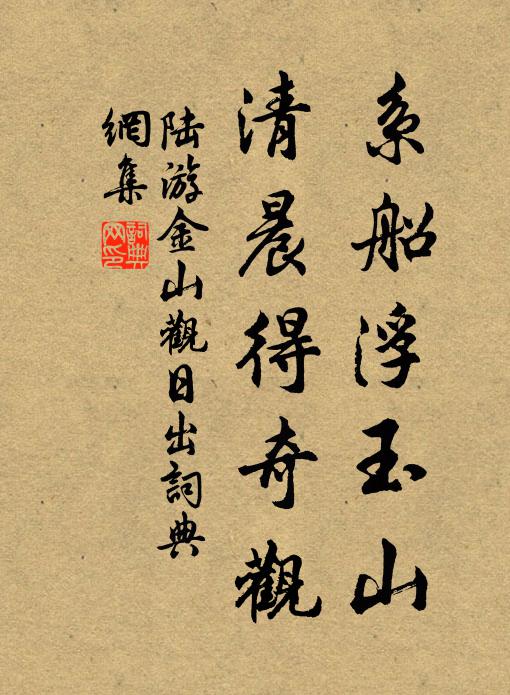 系船浮玉山
清晨得奇觀
陆游金山觀日出詞典
網集
詞典网印